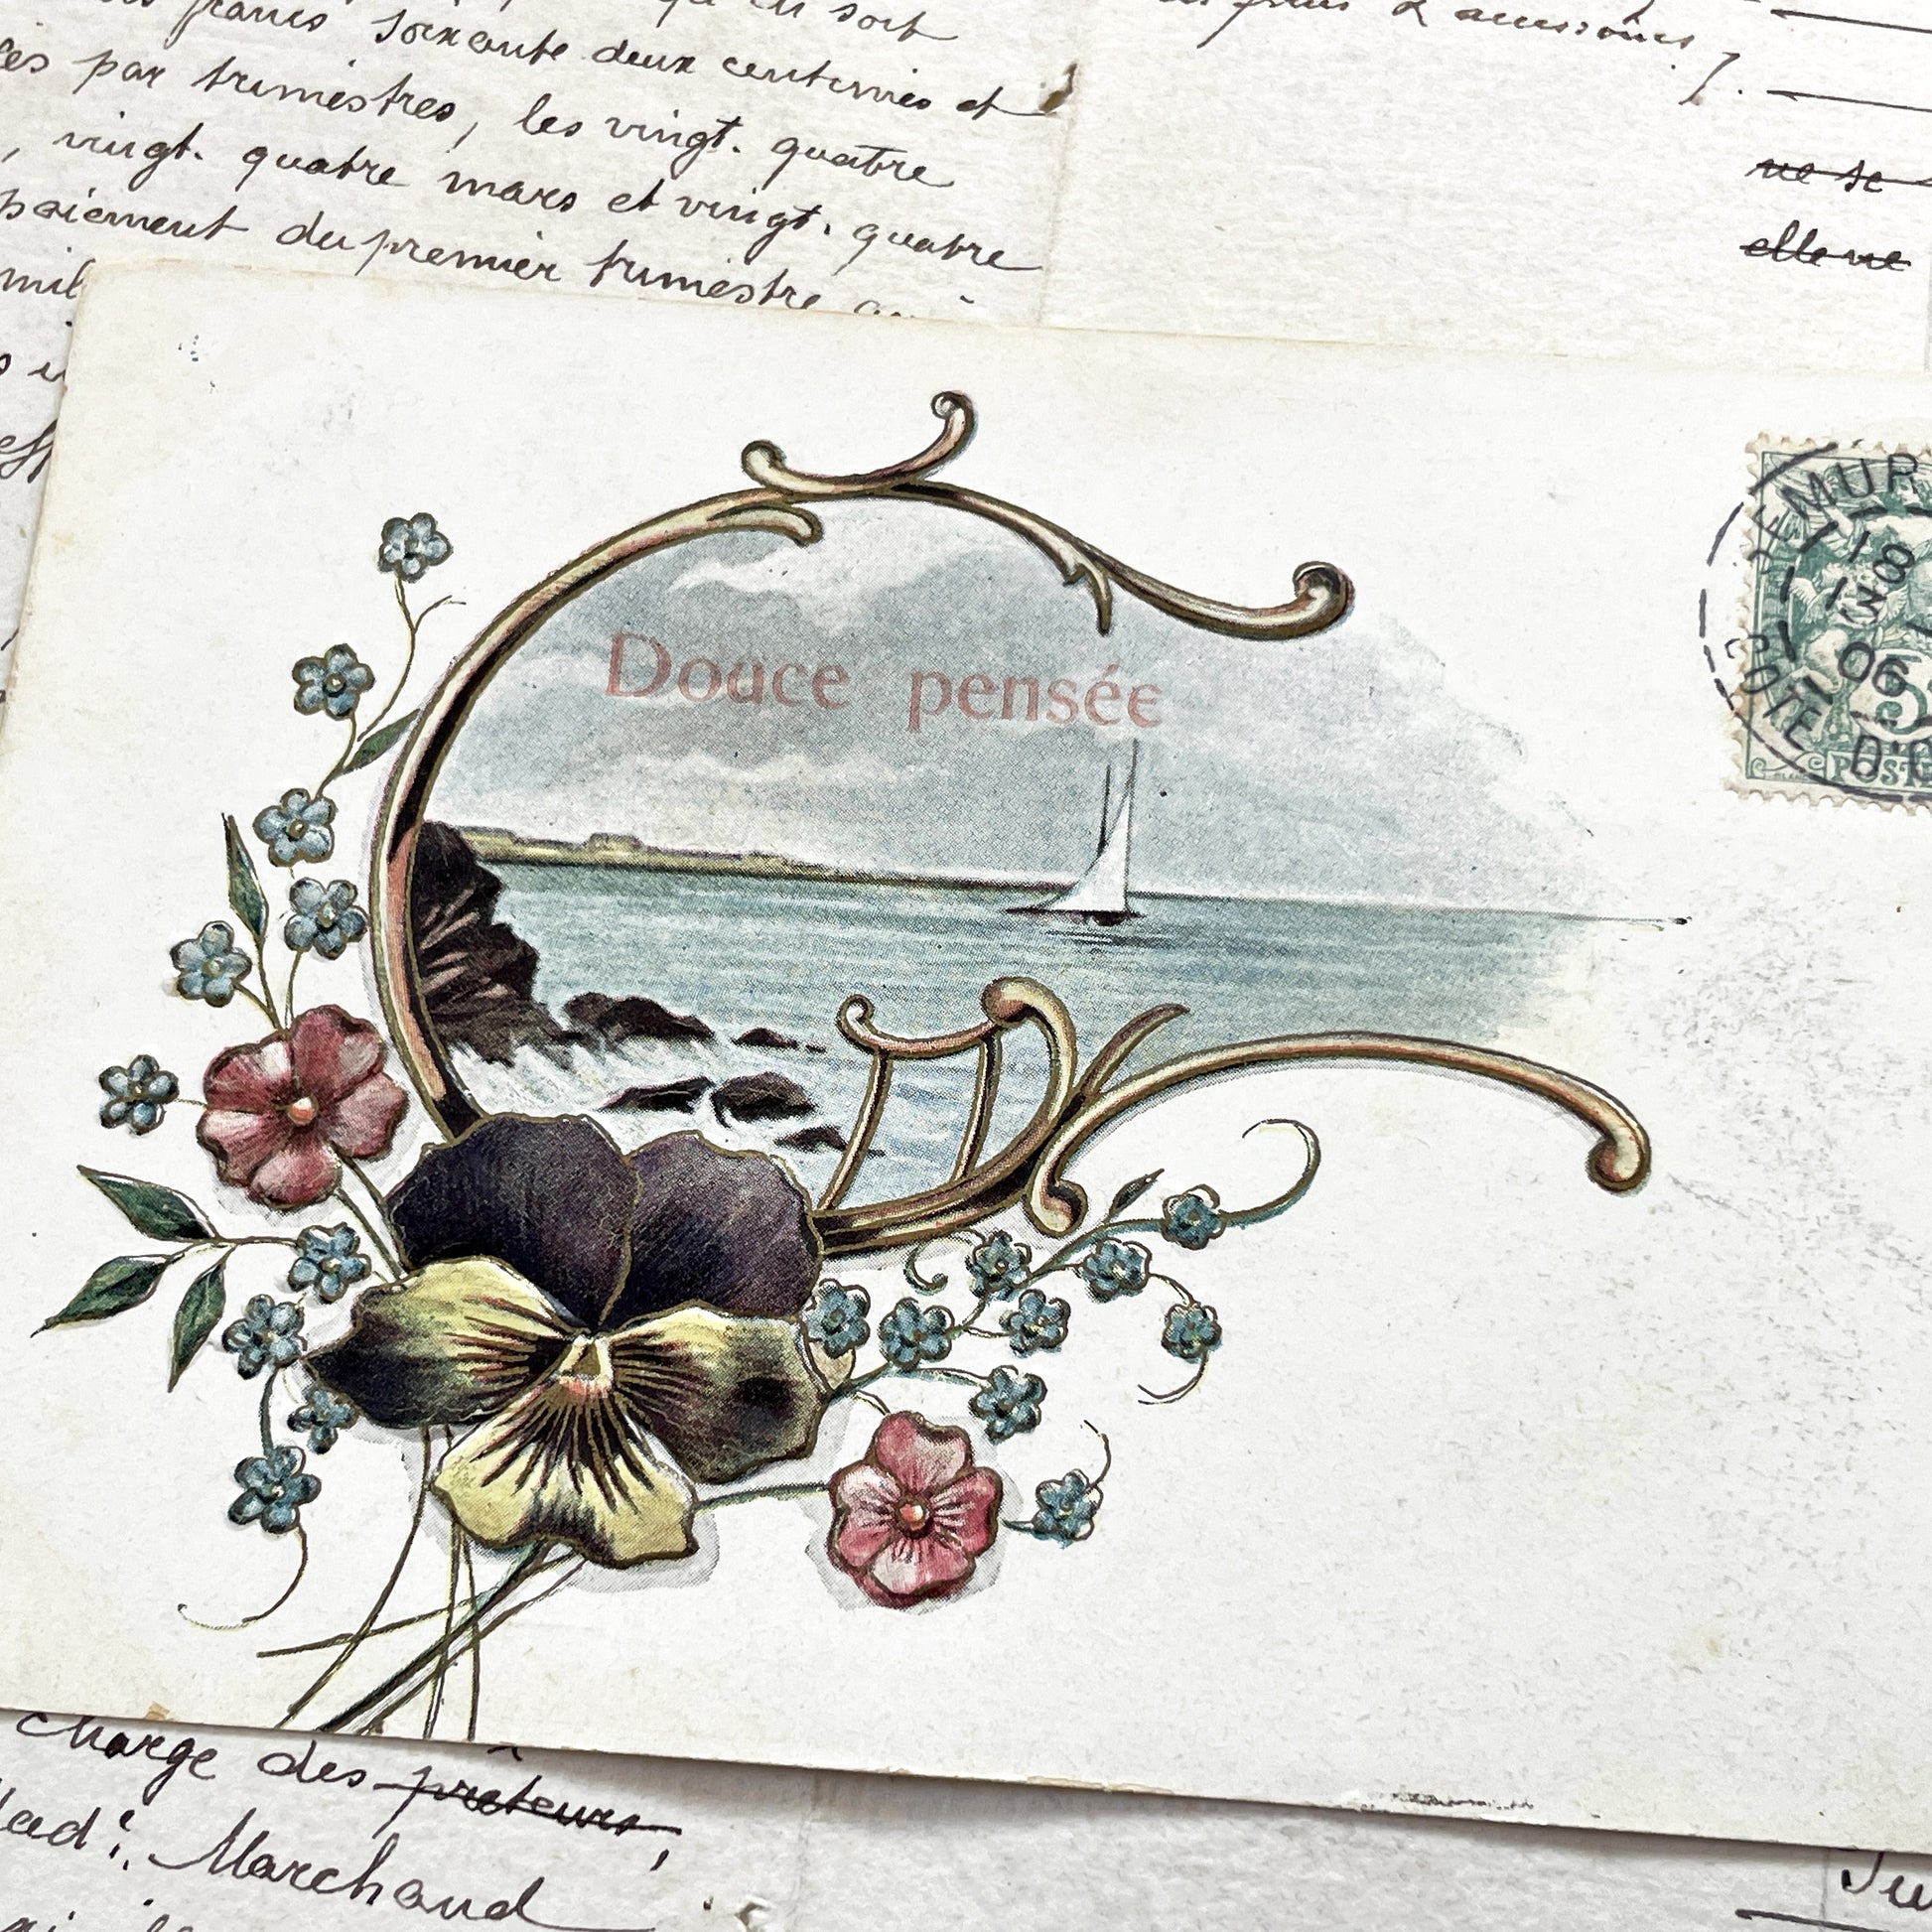 francs soixante deux centimes et
par trimestres, les vingt-quatre
, vingt-quatre mars et vingt-quatre
paiement du premier trimestre
mil
& accessoires).
ne se
elle ne
Douce pensée
SEMUR
18
06
CÔTE D'O
5
POSTE
charge des prêteurs,
Mad: Marchand